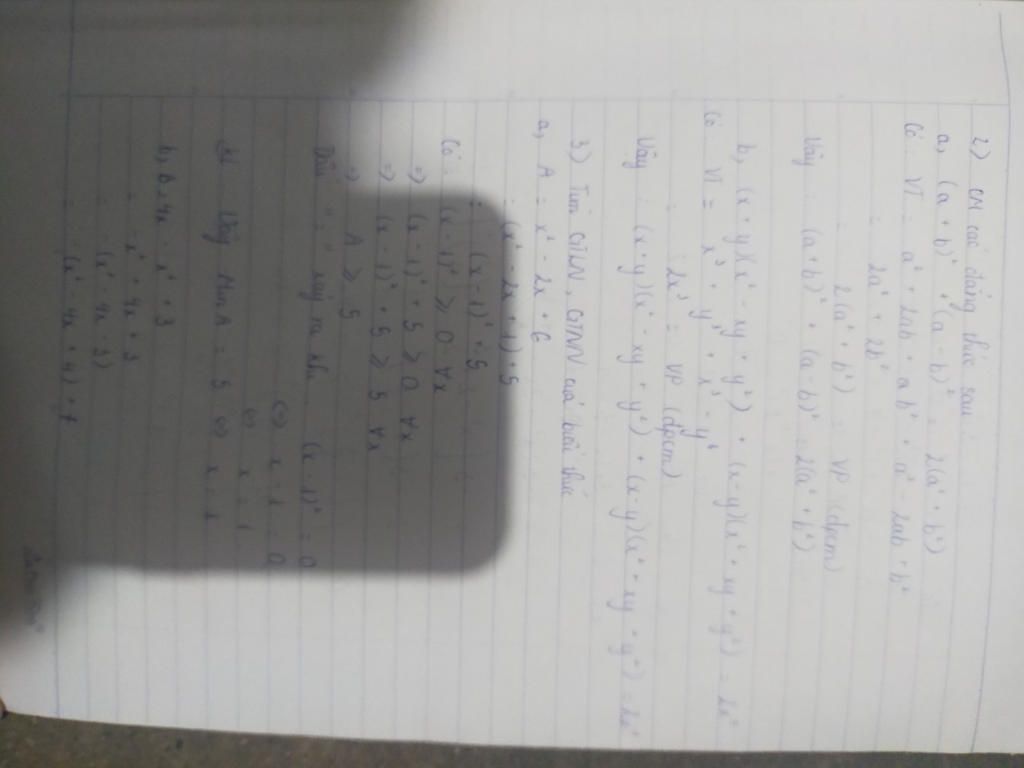 2) CM các đẳng thức sau:
a, (a + b)² + (a - b)² = 2(a² + b²)
Có: VT = a² + 2ab + ab² + a² - 2ab + b²
= 2a² + 2b²
= 2(a² + b²) = VP (đpcm)
Vậy: (a+b)² + (a-b)² = 2(a² + b²)
b, (x + y)(x² - xy + y²) + (x-y)(x² + xy + y²) = 2x³
Có VT = x³ + y³ + x³ - y³
= 2x³ = VP (đpcm)
Vậy: (x+y)(x² - xy + y²) + (x-y)(x² + xy + y²) = 2x³
3) Tìm GTLN, GTNN của biểu thức
a, A = x² - 2x + 6
= (x² - 2x + 1) + 5
= (x - 1)² + 5
Có: (x - 1)² ≥ 0 ∀x
=> (x - 1)² + 5 ≥ 0 ∀x
=> (x - 1)² + 5 ≥ 5 ∀x
=> A ≥ 5
Dấu "=" xảy ra khi (x - 1)² = 0
<=> x - 1 = 0
<=> x = 1
Vậy Min A = 5 <=> x = 1
b, B = 4x - x² + 3
= -x² + 4x + 3
= -(x² - 4x - 3)
= -(x² - 4x + 4) + 7